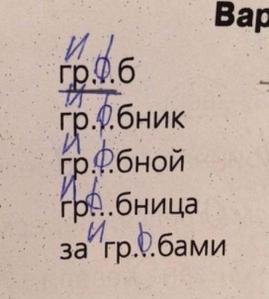 Вар
и
гр...б
и
гр...бник
и
гр...бной
и
гр...бница
и
за гр...бами